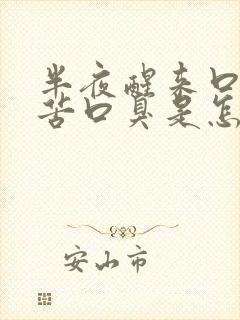 半夜醒来口
苦口臭是怎
安山市